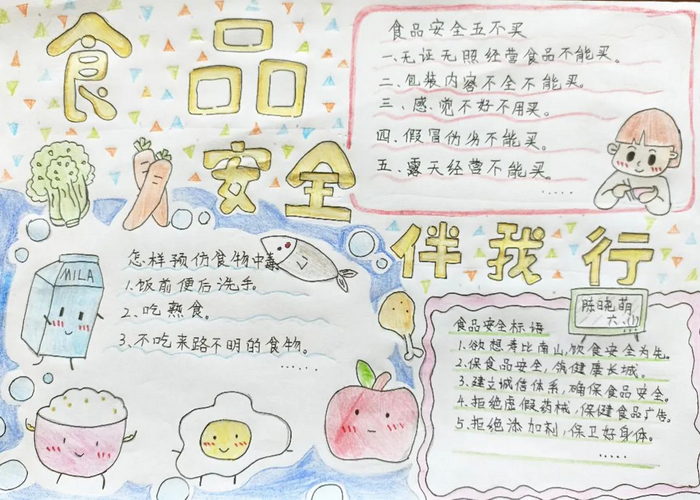 食品
安全
伴我行
食品安全五不买
一、无证无照经营食品不能买。
二、包装内容不全不能买。
三、感觉不好不用买。
四、假冒伪劣不能买。
五、露天经营不能买。
......
怎样预仿食物中毒
1、饭前便后洗手。
2、吃熟食。
3、不吃来路不明的食物。
......
MILA
陈晓萌
食品安全标语
1.欲想寿比南山,饮食安全为先。
2.保食品安全,筑健康长城。
3.建立诚信体系,确保食品安全。
4.拒绝虚假药械,保健食品广告。
5.拒绝添加剂,保卫好身体。
......